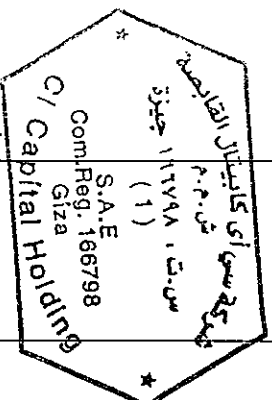 شركة سى أى كابيتال القابضة
ش.م.م
س.ت ، ١٦٦٧٩٨ جيزة
( 1 )
S.A.E
Com.Reg. 166798
Giza
CI Capital Holding